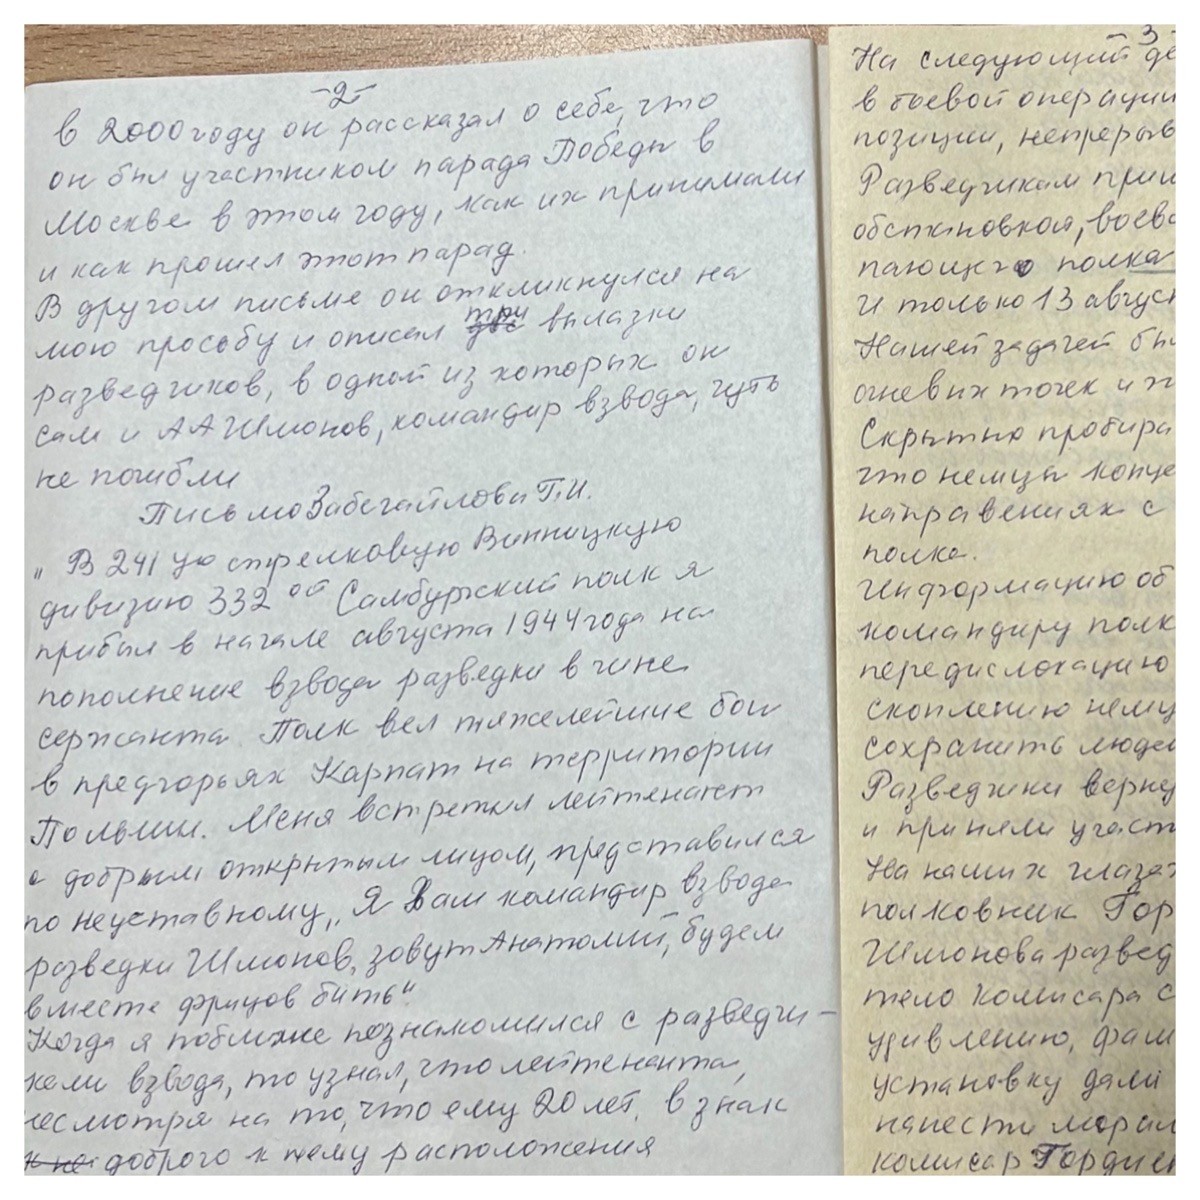 -2-
в 2000 году он рассказал о себе, что
он был участником парада Победы в
Москве в этом году, как их принимали
и как прошел этот парад.
В другом письме он откликнулся на
мою просьбу и описал три вылазки
разведчиков, в одной из которых он
сам и А А Шмонов, командир взвода, чуть
не погибли
Письмо Забегайлова Г.И.
„ В 241 ую стрелковую Винницкую
дивизию 332 ой Самбурский полк я
прибыл в начале августа 1944 года на
пополнение взвода разведки в чине
сержанта. Полк вел тяжелейшие бои
в предгорьях Карпат на территории
Польши. Меня встретил лейтенант
с добрым открытым лицом, представился
по неуставному „ Я Вам командир взвода
разведки Шмонов, зовут Анатолий, будем
вместе фрицов бить"
Когда я поближе познакомился с разведчи-
ками взвода, то узнал, что лейтенанта,
несмотря на то, что ему 20 лет, в знак
доброго к нему расположения
-3-
На следующий де
в боевой операции
позиции, непрерыв
Разведчикам приш
обстановкой, воева
пающего полка
И только 13 август
Нашей задачей бы
огневых точек и ж
Скрытно пробира
что немцы конце
направениях с
полка.
Информацию об
командиру полк
передислокацию
скоплению нему
сохранить людей
Разведчики верну
и приняли участ
На наших глазах
полковник Гор
Шмонова развед
тело комисара с
удивлению, фаш
установку дали
нанести морал
комисар Гордиен